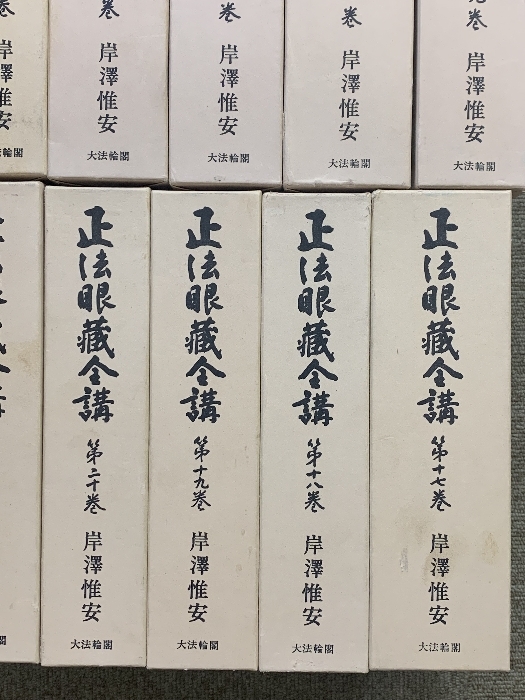 巻 岸澤惟安 大法輪閣
巻 岸澤惟安 大法輪閣
巻 岸澤惟安 大法輪閣
巻 岸澤惟安 大法輪閣
巻 岸澤惟安 大法輪閣
正法眼藏全講 第十七巻 岸澤惟安 大法輪閣
正法眼藏全講 第十八巻 岸澤惟安 大法輪閣
正法眼藏全講 第十九巻 岸澤惟安 大法輪閣
正法眼藏全講 第二十巻 岸澤惟安 大法輪閣
藏全講 閣